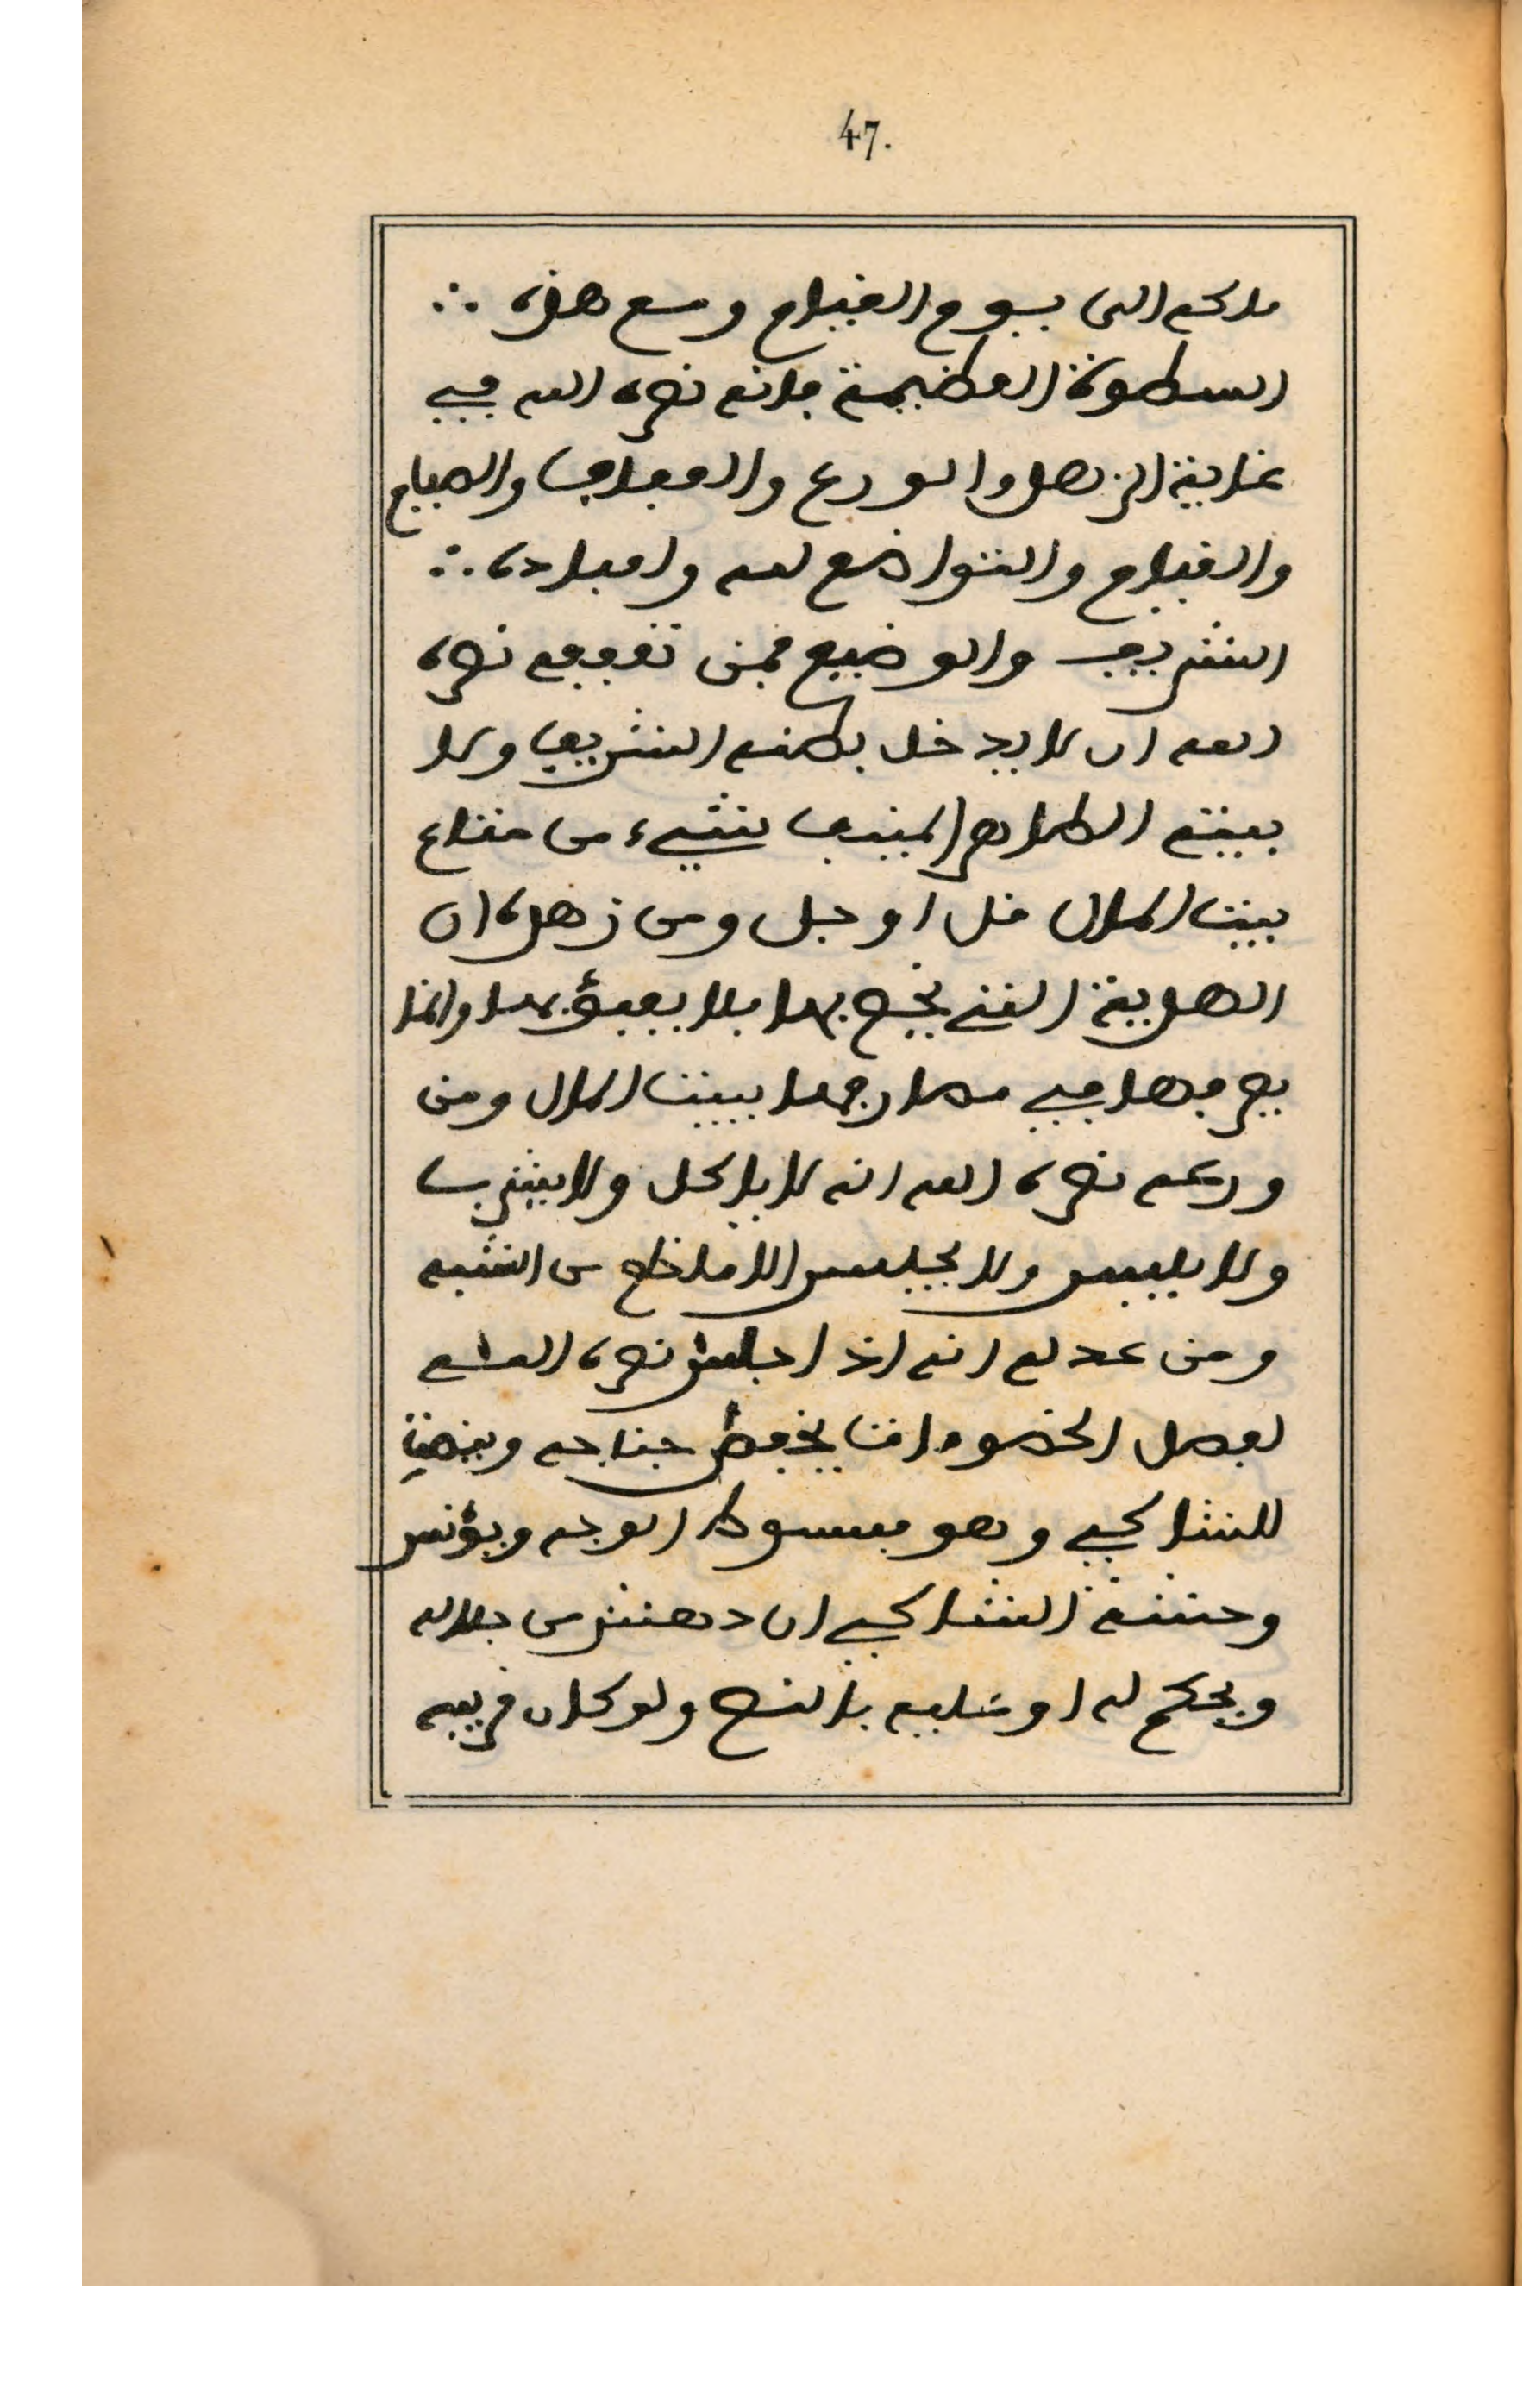 47.
ملكه الى يوم القيام ومع هذه ∴
السطوة العظيمة فانه نصره الله في
غاية الزهد والورع والعفاف والصيام
والقيام والتواضع لله ولعباده ∴
الشريف والوضيع فمن تعففه نصره
الله ان لا يدخل بطنه الشريف ولا
بيته الطاهر المنيف شيء من متاع
بيت المال قل او جل ومن زهده ان
الهدية التي يخص بها فلا يعبؤ بها وانما
يصرفها في مصارفها بيت المال ومن
ورعه نصره الله انه لا ياكل ولا يشرب
ولا يلبس ولا يجلس الا ما خلع من الشبه
ومن عدله انه اذا جلس نصره الله
لفصل الخصومات يخفض جناحه وينصت
للشاكي وهو مبسوط الوجه ويؤنس
وحشة الشاكي ان دهش من جلاله
ويحكم له او عليه بالنص ولو كان قريبه